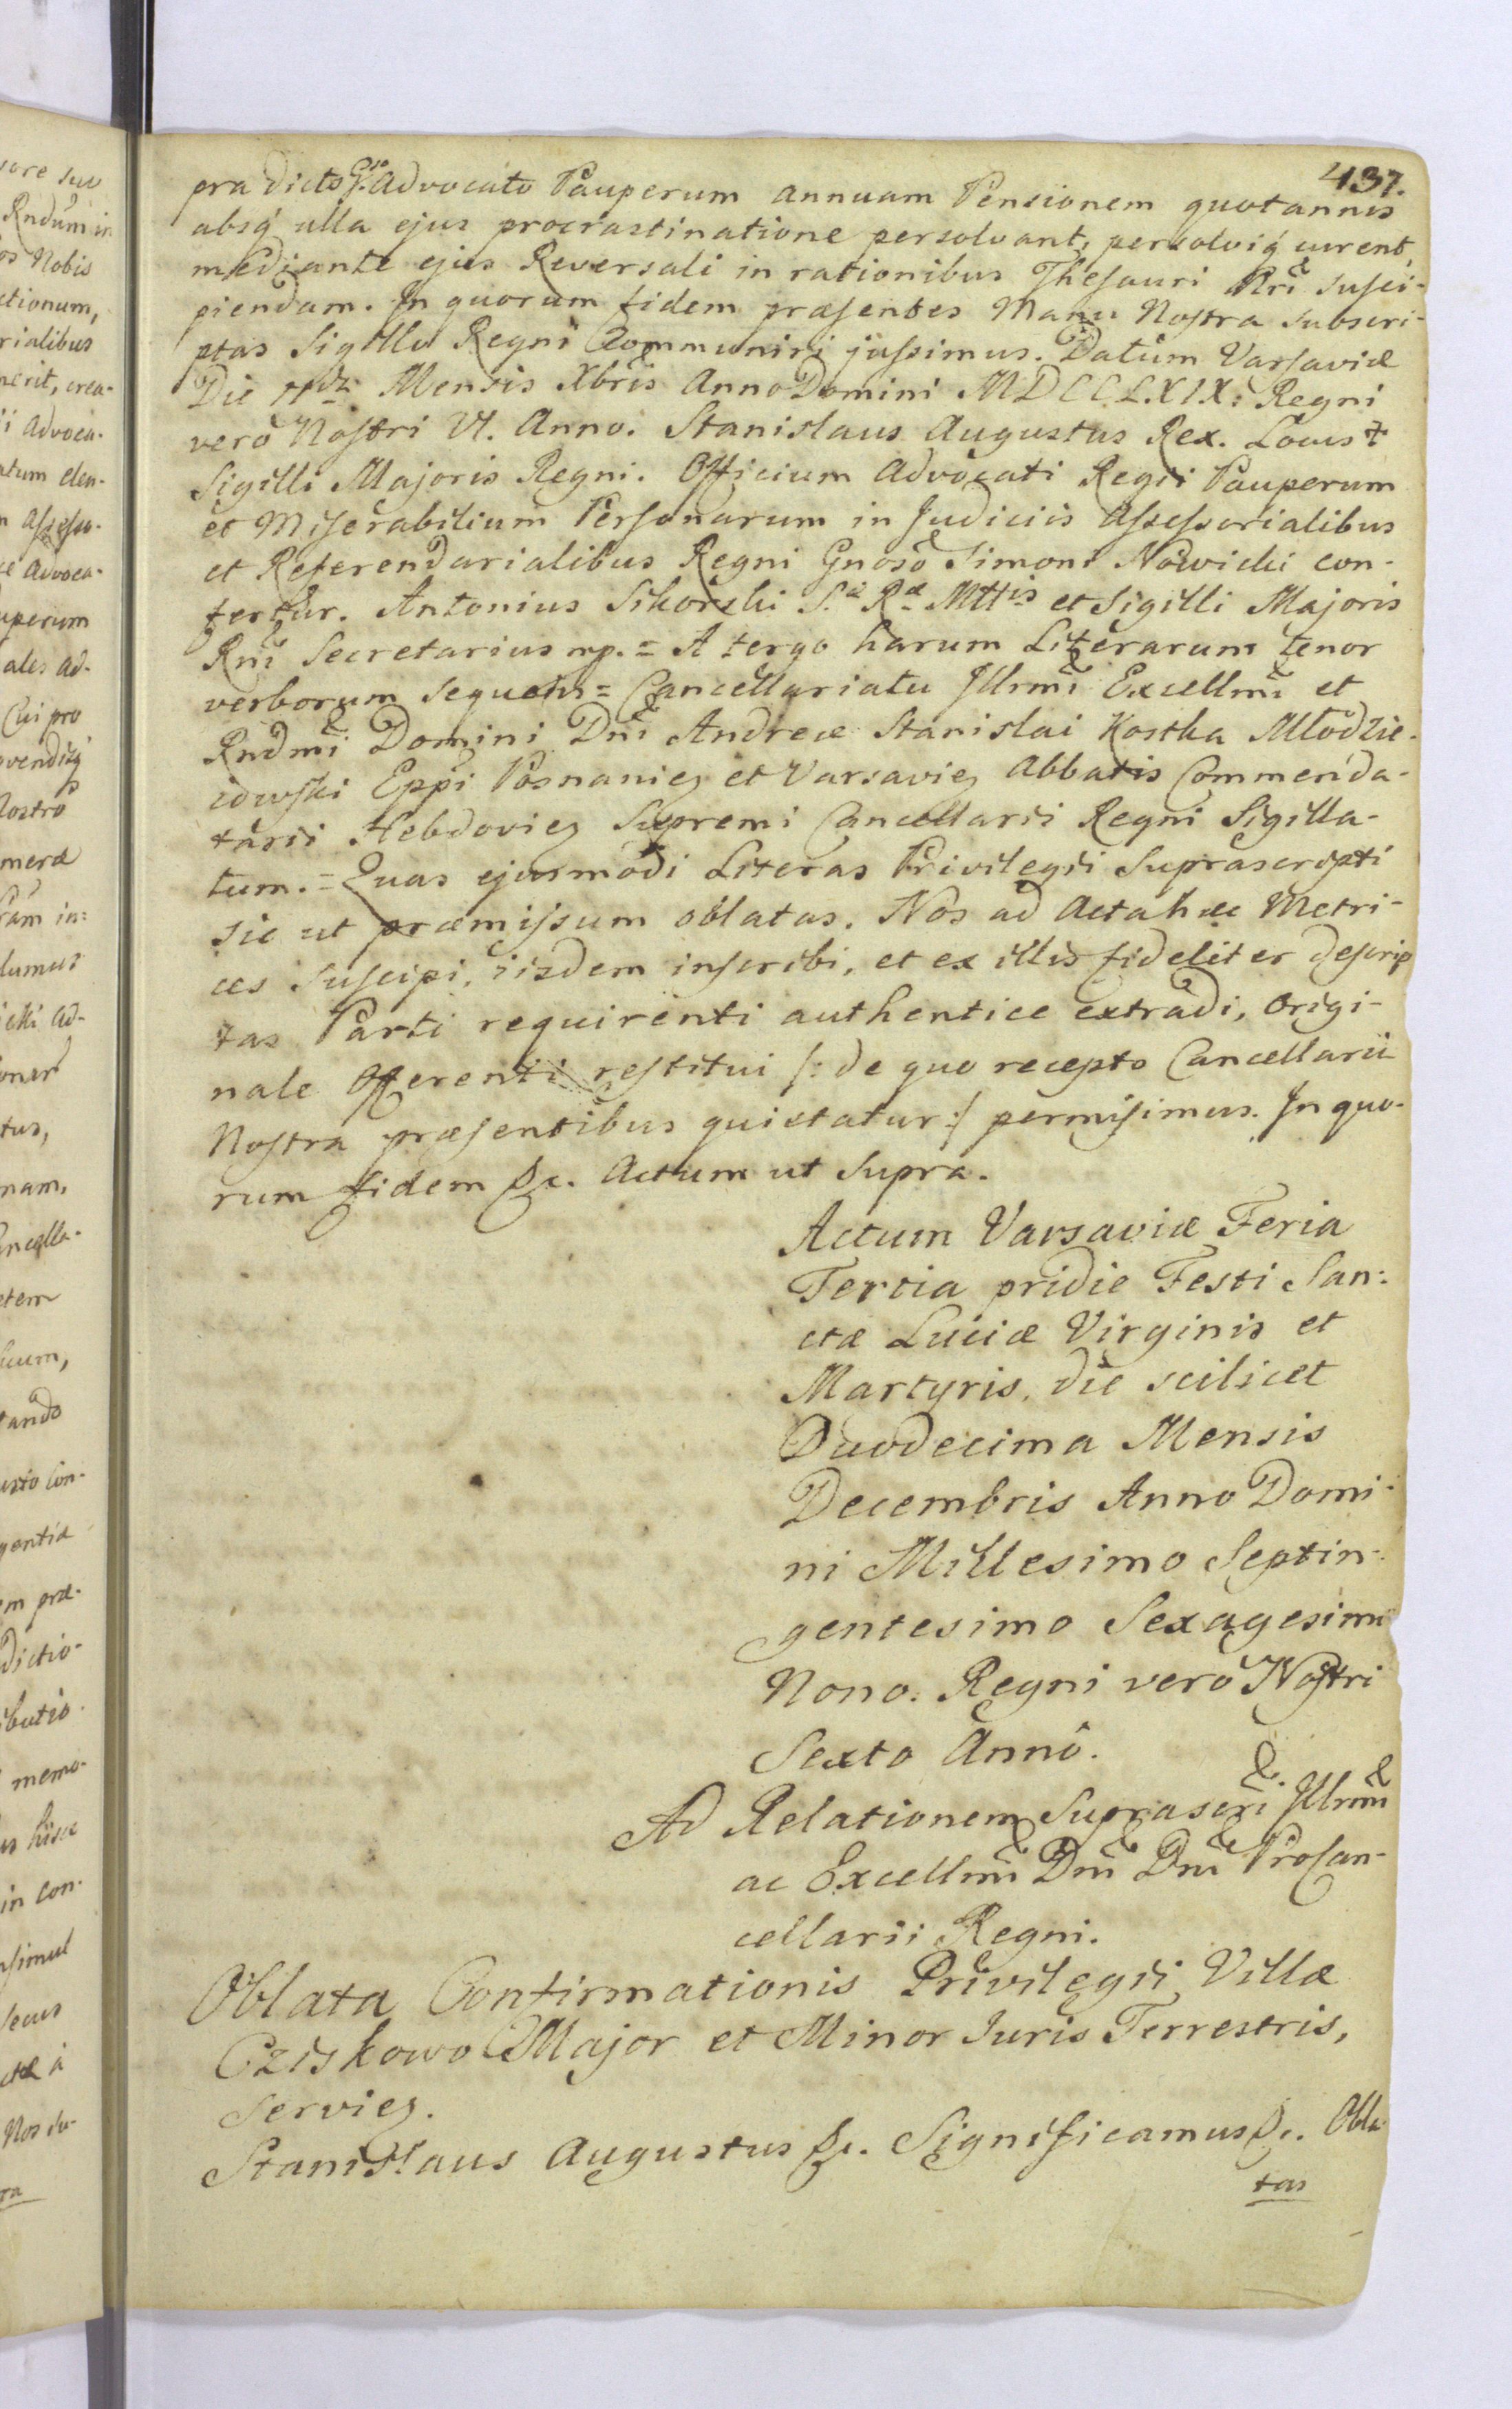 437.
prædicto Gso Advocato Pauperum annuam Pensionem quotannis
absq́ ulla ejus procrastinatione persolvant, persolviq́ curent,
mediante ejus Reversali in rationibus Thesauri Nri susci-
piendam. In quorum fidem præsentes Manu Nostra subscri-
ptas Sigillo Regni Communiri jussimus. Datum Varsaviæ
Die Mensis Xbris Anno Domini MDCCLXIX: Regni
verò Nostri VI. Anno. Stanislaus Augustus Rex. Locus †
Sigilli Majoris Regni. Officium Advocati Regii Pauperum
et Miserabilium Personarum in Judiciis Assessorialibus
et Referendarialibus Regni Gnoso Simoni Nowicki con-
fertur. Antonius Sikorski S.æ Ræ Mttis et Sigilli Majoris
Rni Secretarius mp. = A tergo harum Literarum tenor
verborum sequens = Cancellariatu Illrmi Excellmi et
Rndmi Domini Dni Andreæ Stanislai Kostka Młodzie-
iowski Eppi Posnanieș et Varsavieș Abbatis Commenda-
tarii Hebdovieș Supremi Cancellarii Regni Sigilla-
tum. = Quas ejusmodi Literas Privilegii Suprascripti
sic ut præmissum oblatas. Nos ad Acta hæc Metri-
ces suscipi, iisdem inscribi, et ex illis fideliter descrip
tas Parti requirenti authentice extradi, Origi-
nale Offerenti restitui /: de quo recepto Cancellarii
Nostra præsentibus quietatur :/ permisimus. In quo-
rum fidem &c. Actum ut supra.
Actum Varsaviæ Feria
Tertia pridie Festi San:
ctæ Luciæ Virginis et
Martyris, die scilicet
Duodecima Mensis
Decembris Anno Domi-
ni Millesimo Septin-
gentesimo Sexagesimo
Nono. Regni verò Nostri
Sexto Annô.
Ad Relationem Suprascri Illrmi
ac Excellmi Dni Dni ProCan-
cellarii Regni.
Oblata Confirmationis Privilegii Villæ
Cziskowo Major et Minor Juris Terrestris,
Servieș.
Stanislaus Augustus &c. Significamus &c. Obla
tas